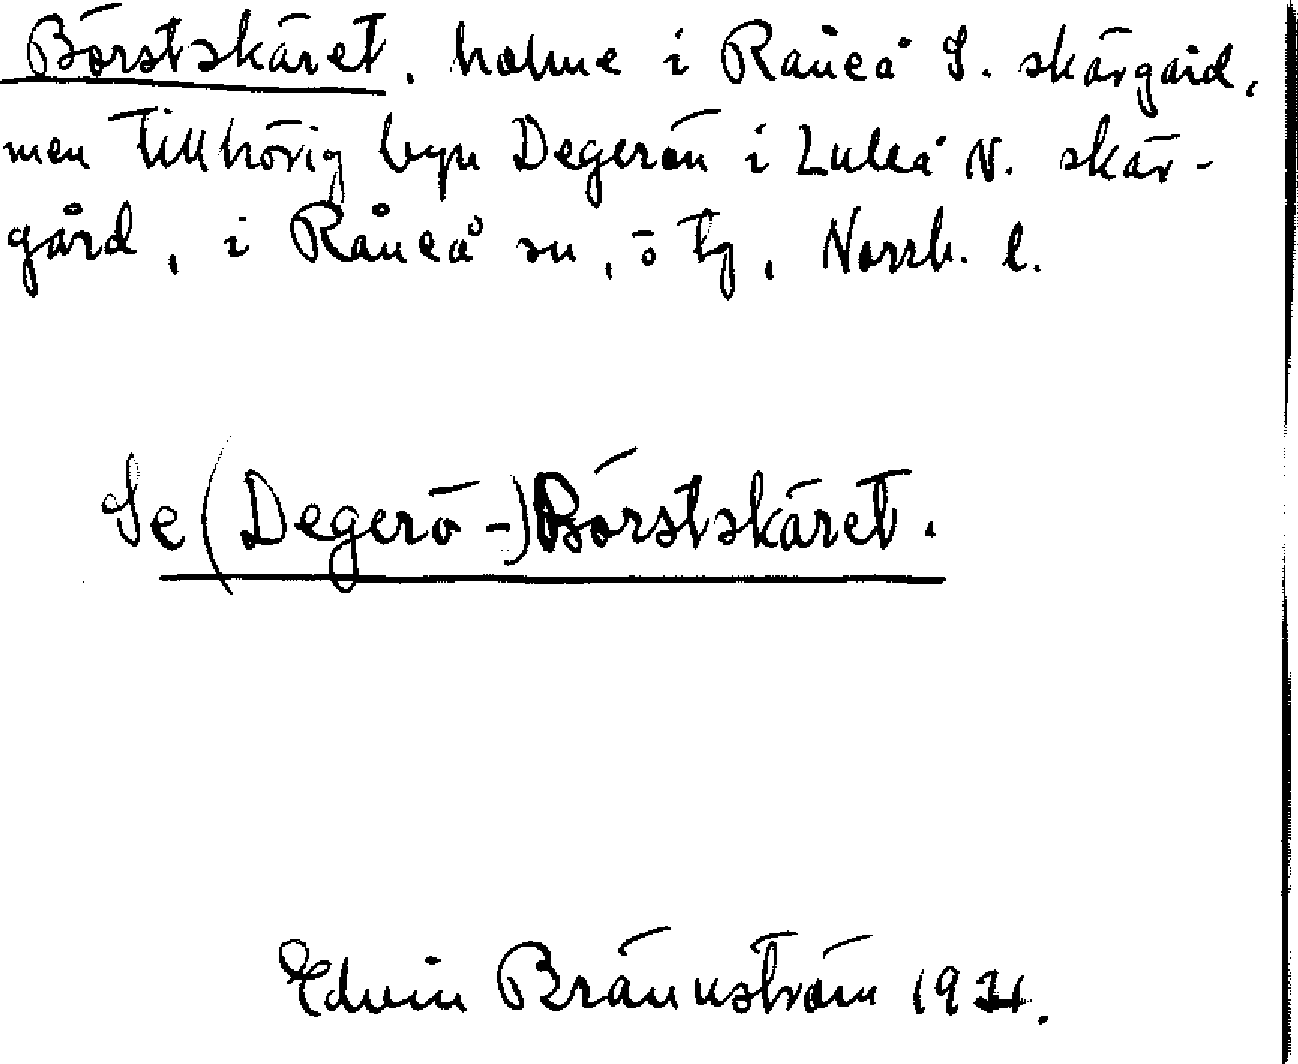 Börstskäret, holme i Råneå S. skärgård,
men tillhörig byn Degerön i Luleå N. skär-
gård, i Råneå sn, ö tg, Norrb. l.
Se (Degerö-)Börstskäret.
Edvin Brännström